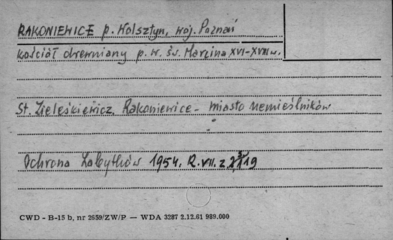 RAKONIEWICE p. Wolsztyn, woj. Poznań
kościół drewniany p.w. św. Marcina XVI-XVIII w.
St. Zieleśkiewicz, Rakoniewice - miasto rzemieślników
Ochrona Zabytków 1954. R. VII. z.
CWD - B-15 b, nr 2659/ZW/P — WDA 3287 2.12.61 999.000